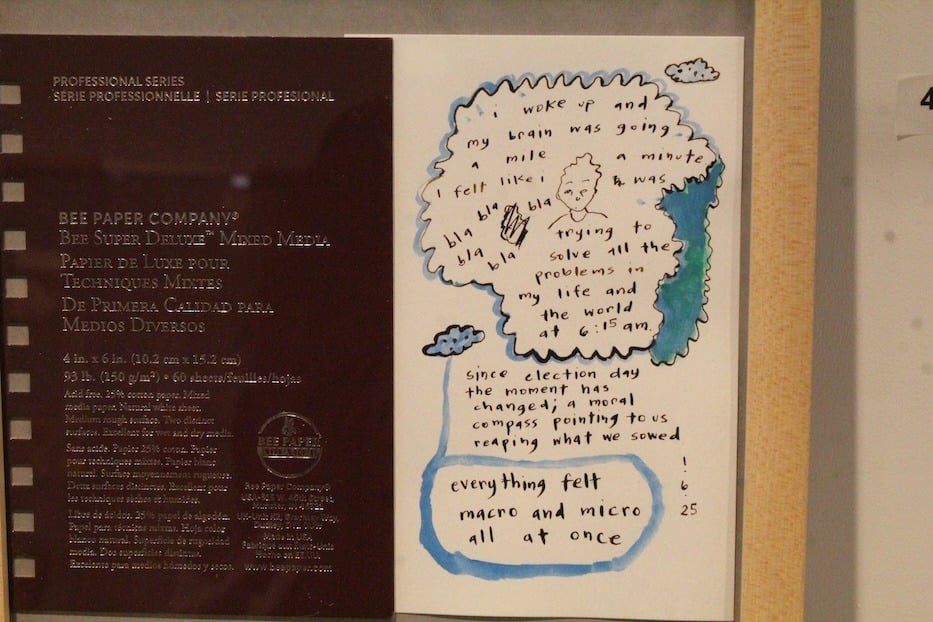 PROFESSIONAL SERIES
SÉRIE PROFESSIONNELLE | SERIE PROFESIONAL
BEE PAPER COMPANY®
BEE SUPER DELUXE™ MIXED MEDIA
PAPIER DE LUXE POUR
TECHNIQUES MIXTES
DE PRIMERA CALIDAD PARA
MEDIOS DIVERSOS
4 in. x 6 in. (10.2 cm x 15.2 cm)
93 lb. (150 g/m²) • 60 sheets/feuilles/hojas
Acid free, 25% cotton paper. Mixed
media paper. Natural white sheet.
Medium rough surface. Two distinct
surfaces. Excellent for wet and dry media.
Sans acide. Papier 25% coton. Papier
pour techniques mixtes. Papier blanc
naturel. Surface moyennement rugueuse.
Deux surfaces distinctes. Excellent pour
les techniques sèches et humides.
Libre de ácidos. 25% papel de algodón.
Papel para técnicas mixtas. Hoja color
blanco natural. Superficie de rugosidad
media. Dos superficies distintas.
Excelente para medios húmedos y secos.
BEE PAPER
Bee Paper Company®
Made in USA
Fabriqué aux États-Unis
Hecho en EE.UU.
www.beepaper.com
i woke up and
my brain was going
a mile a minute
I felt like i was
bla bla
bla
bla bla
trying to
solve all the
problems in
my life and
the world
at 6:15 am.
since election day
the moment has
changed; a moral
compass pointing to us
reaping what we sowed
everything felt
macro and micro
all at once
!
6
25
4